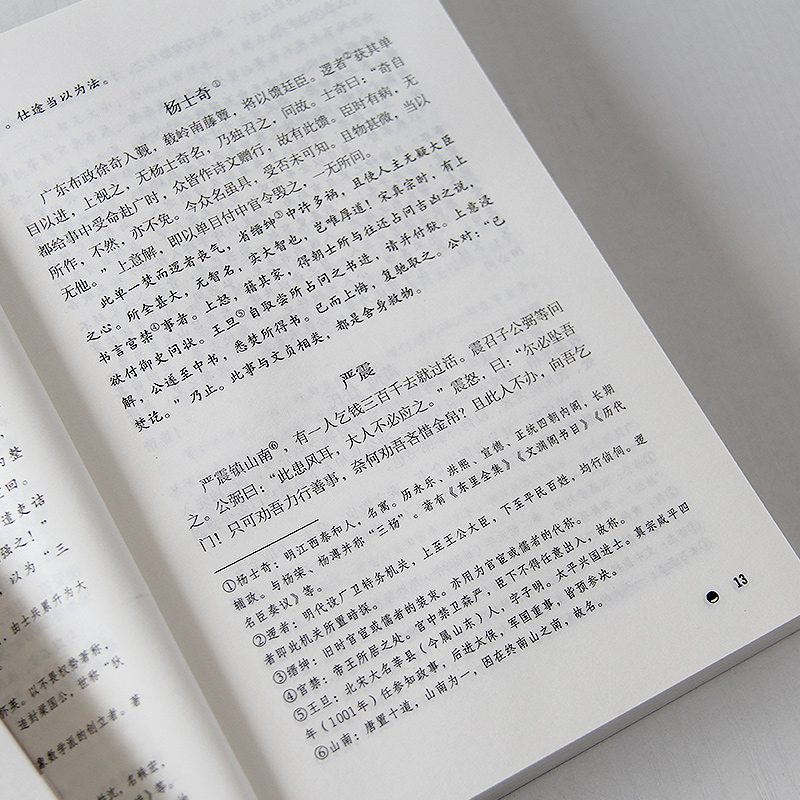 。仕途当以为法。
杨士奇①
广东布政徐奇入觐，载岭南藤簟，将以馈廷臣。逻者②获其单
目以进，上视之，无杨士奇名，乃独召之，问故。士奇曰：“奇自
都给事中受命赴广时，众皆作诗文赠行，故有此馈。臣时有病，无
所作，不然，亦不免。今众名虽具，受否未可知。且物甚微，当以
无他。”上意解，即以单目付中官令毁之，一无所问。
此单一焚而逻者丧气，省缙绅③中许多祸，且使人主无疑大臣
之心。所全甚大，无智名，实大智也，岂唯厚道！宋真宗时，有上
书言宫禁④事者。上怒，籍其家，得朝士所与往还占问吉凶之说，
欲付御史问状。王旦⑤自取尝所占问之书进，请并付狱。上意浸
解，公遂至中书，悉焚所得书。已而上悔，复驰取之。公对：“已
焚讫。”乃止。此事与文贞相类，都是舍身救物。
严震
严震镇山南⑥，有一人乞钱三百千去就过活。震召子公弼等问
之。公弼曰：“此患风耳，大人不必应之。”震怒，曰：“尔必坠吾
门！只可劝吾力行善事，奈何劝吾吝惜金帛？且此人不办，向吾乞
①杨士奇：明江西泰和人，名寓。历永乐、洪熙、宣德、正统四朝内阁，长期
辅政。与杨荣、杨溥并称“三杨”。著有《东里全集》《文渊阁书目》《历代
名臣奏议》等。
②逻者：明代设厂卫特务机关，上至王公大臣，下至平民百姓，均行侦伺。逻
者即此机关所置暗探。
③缙绅：旧时官宦或儒者的装束。亦用为官宦或儒者的代称。
④宫禁：帝王所居之处。宫中禁卫森严，臣下不得任意出入，故称。
⑤王旦：北宋大名莘县（今属山东）人，字子明。太平兴国进士。真宗咸平四
年（1001年）任参知政事，后进太保，军国重事，皆预参决。
⑥山南：唐置十道，山南为一，因在终南山之南，故名。
13
的整
回。
遣吏诘
之！”
，以为“三
由士兵展升为大
以不要权势著称，
追封梁国公，世称“狄
象数学派的创立者。著
，名棣宏，
》等。